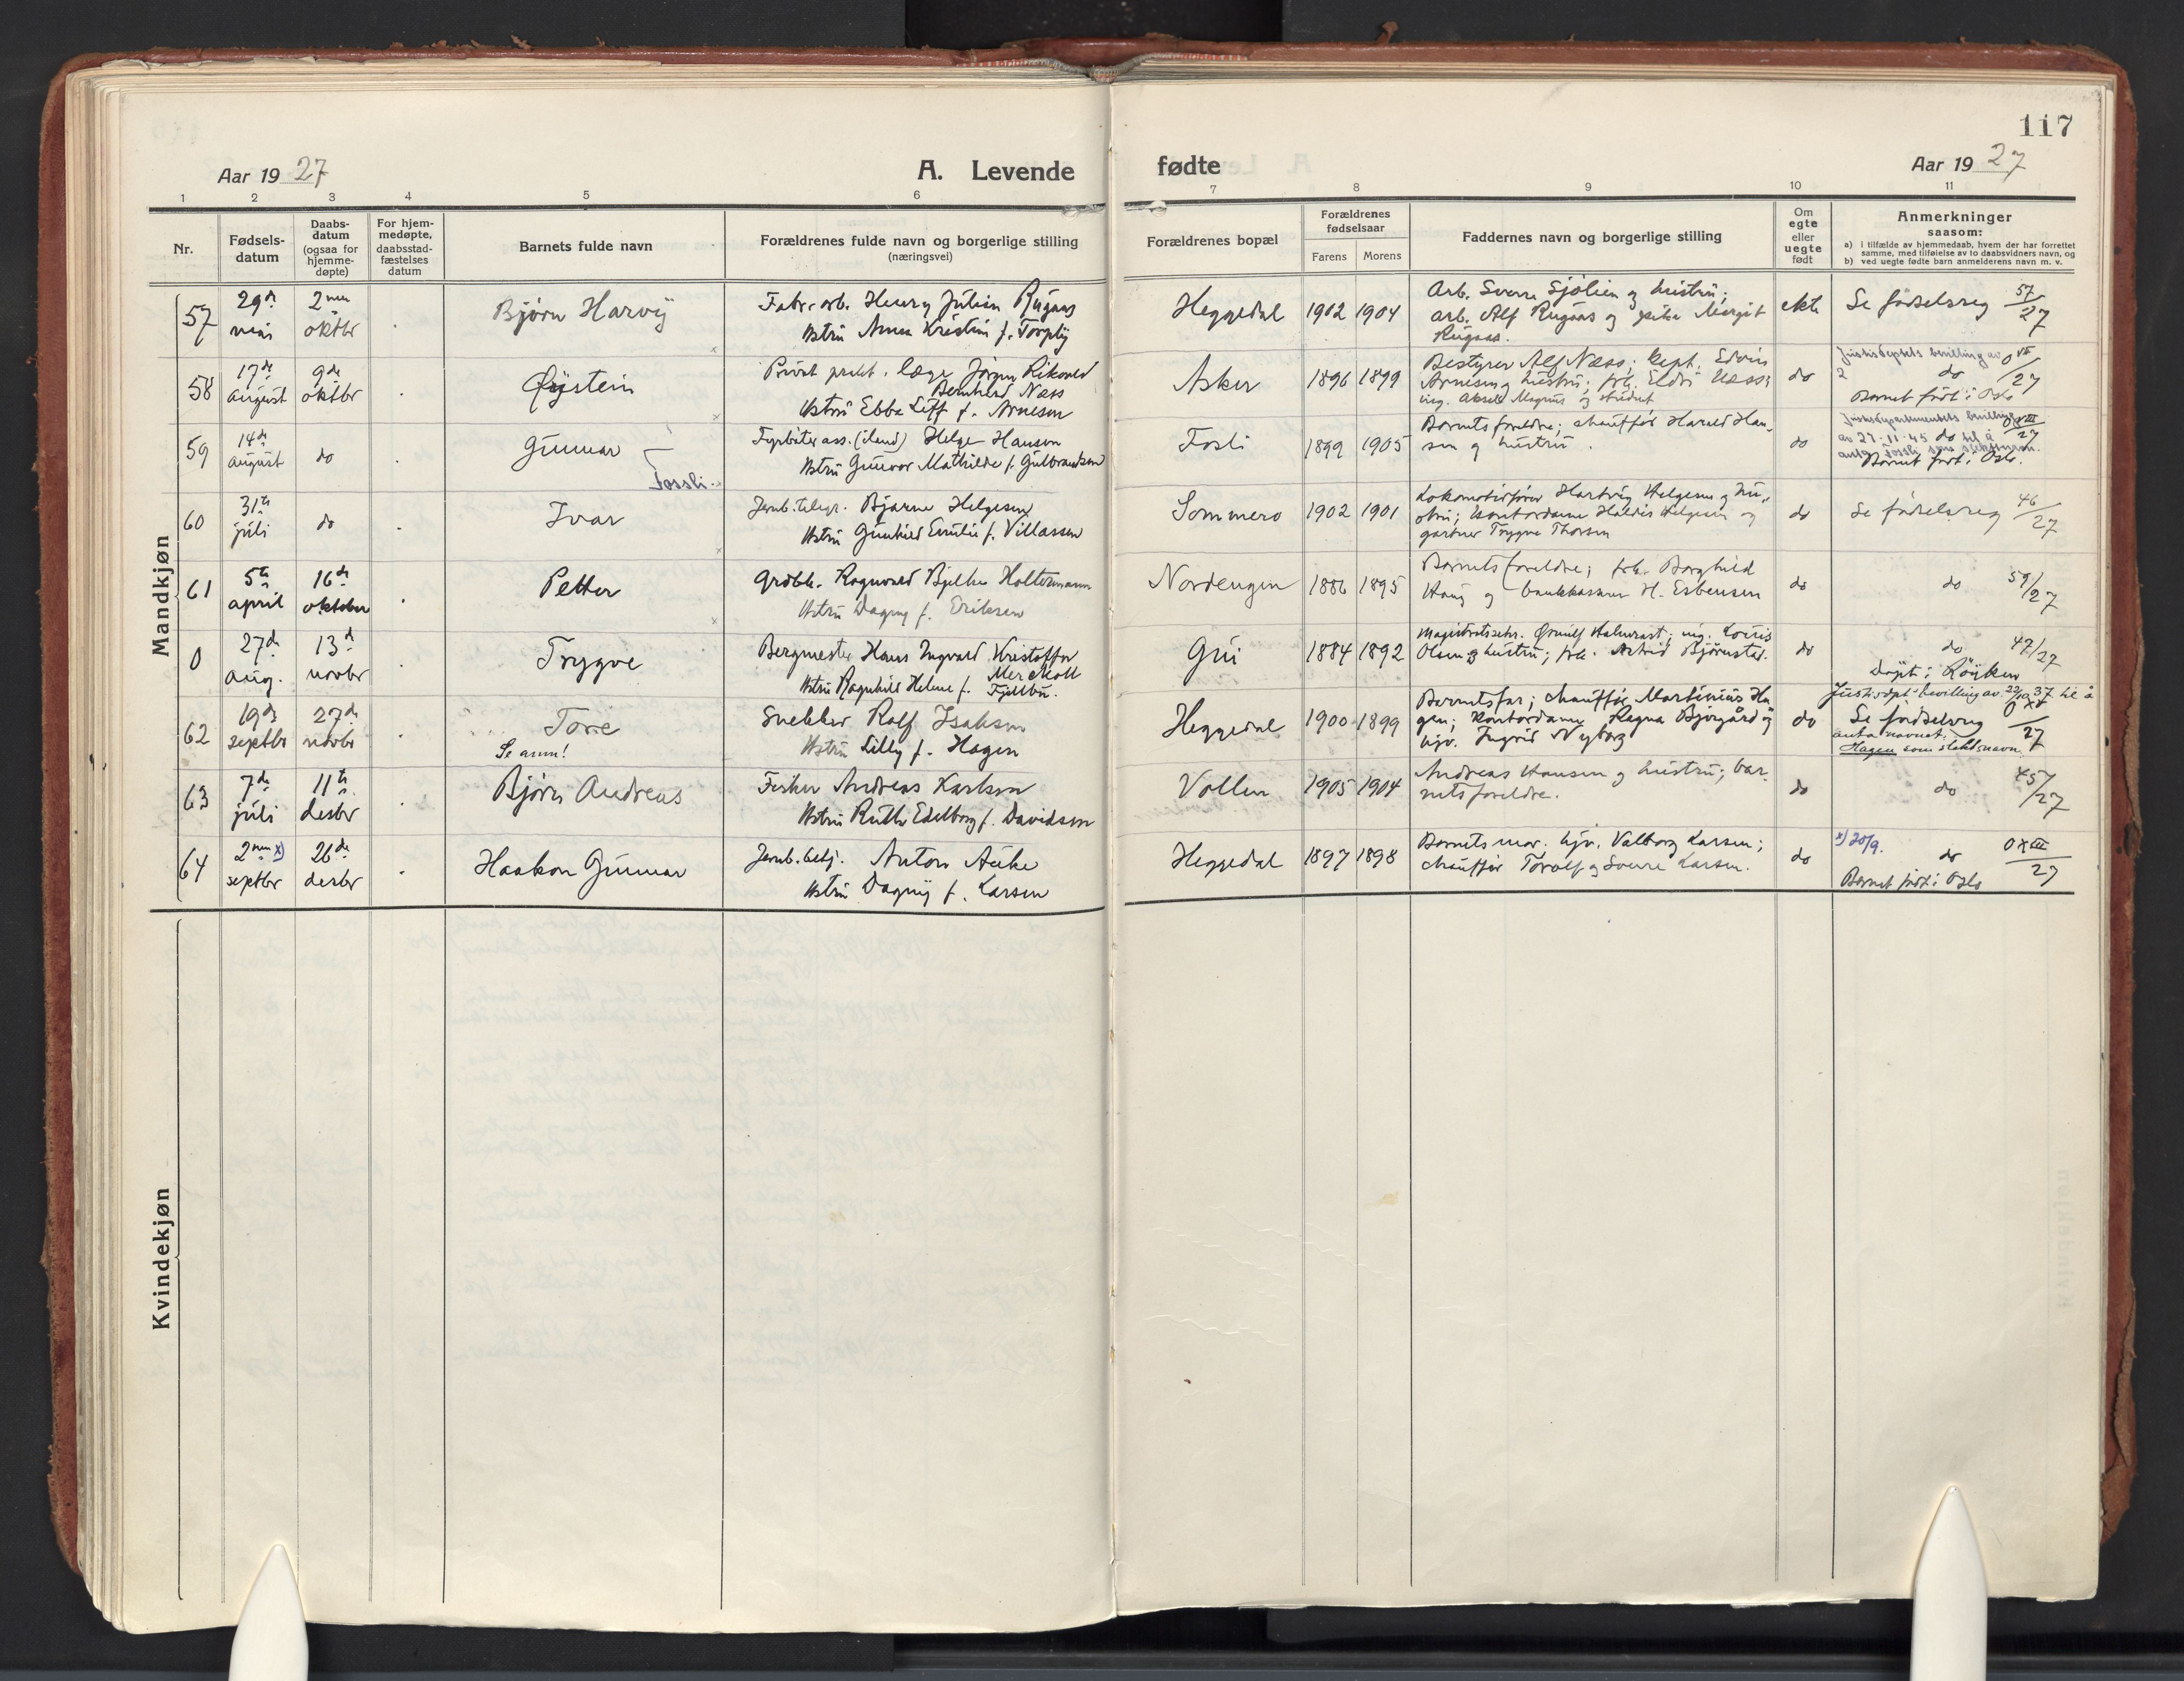 117
Aar 1927
A. Levende
fødte
Aar 1927
1 2 3 4 5 6 7 8 9 10 11
Nr.
Fødsels-
datum
Daabs-
datum
(ogsaa for
hjemme-
døpte)
For hjem-
medøpte,
daabsstad-
fæstelses
datum
Barnets fulde navn
Forældrenes fulde navn og borgerlige stilling
(næringsvei)
Forældrenes bopæl
Forældrenes
fødselsaar
Farens Morens
Faddernes navn og borgerlige stilling
Om
egte
eller
uegte
født
Anmerkninger
saasom:
a) i tilfælde av hjemmedaab, hvem der har forrettet
samme, med tilføielse av to daabsvidners navn, og
b) ved uegte fødte barn anmelderens navn m. v.
Mandkjøn
57
29de
mai
2nen
oktbr
Bjørn Harvy
Fabr.arb. Henry Julian Rugaas
Hstru Anna Kristin f. Torpby
Heggedal
1902 1904
Arb. Sverre Sjølien og hustru;
arb. Alf Rugaas og pike Margit
Rugaas.
ekte
Se fødselsreg 57/27
58
17de
august
9de
oktbr
Øystein
Privat prakt. læge Jørgen Rikard
Bernhard Næss
Hstru Ebba Liff f. Arnesen
Asker
1896 1899
Bestyrer Alf Næss; kapt. Edvin
Arnesen og hustru; frk. Eldri Næss;
ing. Aksel Magnus og student
do
do
27
Barnet født i Oslo
59
14de
august
do
Gunnar
Fossli
Fyrbøterass. (iland) Helge Hansen
Hstru Gunvor Mathilde f. Gulbrandsen
Fosli
1899 1905
Barnets foreldre; chauffør Harald Han-
sen og hustru.
do
Justisdepartementets bevilling
av 27.11.45 do til å
anta Fossli som slektsnavn.
Barnet født i Oslo.
60
31te
juli
do
Ivar
Jernb.telegr. Bjarne Helgesen
Hstru Gunhild Emilie f. Villassen
Sommero
1902 1901
Lokomotivfører Hartvig Helgesen og hu-
stru; kontordame Haldis Helgesen og
gartner Trygve Thorsen
do
Se fødselsreg 46/27
61
5te
april
16de
oktober
Petter
Grdbr. Ragnvald Bjelke Holtermann
Hstru Dagny f. Eriksen
Nordengen
1886 1895
Barnets foreldre; frk. Borghild
Haug og bankkasserer H. Esbensen
do
do 59/27
0
27de
aug.
13de
novbr
Trygve
Bergmester Hans Ingvald Kristoffer
Merckoll
Hstru Ragnhild Helene f. Fjellbu.
Gui
1884 1892
Magistratssekr. Ørnulf Halvorst; ing. Louis
Olsen og hustru; frk. Astrid Bjørnstad.
do
do 47/27
Døpt i Røyken
62
19de
septbr
27de
novbr
Tore
Se anm!
Snekker Rolf Isaksen
Hstru Lilly f. Hagen
Heggedal
1900 1899
Barnets far; chauffør Martinius Ha
gen; kontordame Ragna Bjørgård og
hjv. Ingrid Nyborg
do
Justisdpt's bevilling av 22/10 37 til å
Se fødselsreg
27
anta navnet:
Hagen som slektsnavn.
63
7de
juli
11te
desbr
Bjørn Andreas
Fisker Andreas Karlsen
Hstru Ruth Edelborg f. Davidsen
Vollen
1905 1904
Andreas Hansen og hustru; bar-
nets foreldre.
do
do 45/27
64
2nen x)
septbr
26de
desbr
Haakon Gunnar
Jernb.betj. Anton Auke
Hstru Dagny f. Larsen
Heggedal
1897 1898
Barnets mor. hjv. Valborg Larsen;
chauffør Torolf og Sverre Larsen.
do
x) 20/9.
do
27
Barnet født i Oslo
Kvindekjøn